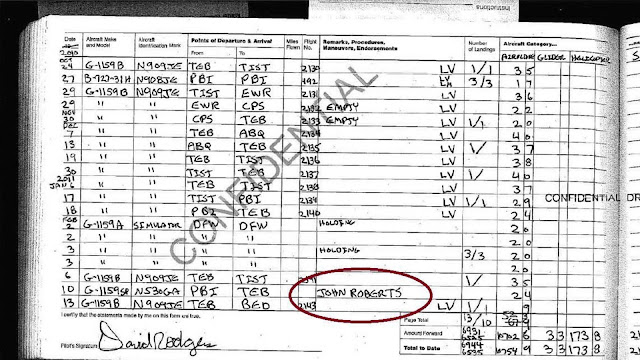 Instructions
Date Aircraft Make and Model Aircraft Identification Mark Points of Departure & Arrival Miles Flown Flight No. Remarks, Procedures, Maneuvers, Endorsements Number of Landings Aircraft Category
From To AIRPLANE GLIDER HELICOPTER
2010
OCT
24 G-1159B N909JE TEB TIST 2130 LV 1/1 3 5
27 B-727-31H N908JE PBI PBI 492 3/3 1 7
29 G-1159B N909JE TIST EWR 2131 LV 3 6
29 " " EWR CPS 2132 EMPTY LV 2 2
NOV
30 " " CPS TEB 2133 EMPTY LV 1/1 2 0
DEC
7 " " TEB ABQ 2134 LV 4 0
13 " " ABQ TEB 2135 LV 1/ 3 7
19 " " TEB TIST 2136 LV 3 8
30 " " TIST TEB 2137 LV 1/ 4 0
2011
JAN 6 " " TEB TIST 2138 LV 3 7
17 " " TIST PBI 2139 LV 1/ 2 9
18 " " PBI TEB 2140 LV 2 4
FEB
2 G-1159A SIMULATOR DFW DFW HOLDING 2 0
2 " " " " 2 0
3 " " " " HOLDING 2 0
3 " " " " 3/3 2 0
6 G-1159B N909JE TEB TIST 1/ 3 5
10 G-1159B N530GA PBI TEB JOHN ROBERTS 2 4
13 G-1159B N909JE TEB BED 2143 LV 1/1 9
CONFIDENTIAL
CONFIDENTIAL DR
I certify that the statements made by me on this form are true.
Pilot's Signature David Rodgers
Page Total 13/10
Amount Forward 6931 6525 33 173 8
Totals to Date 6944 6535 33 173 8